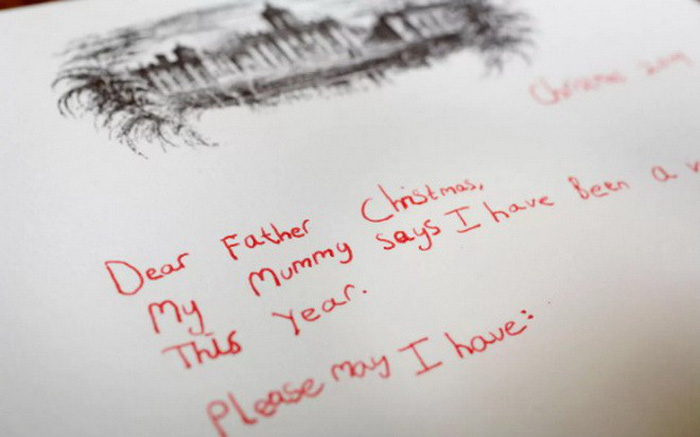 Dear Father Christmas,
My Mummy says I have Been a
This Year.
Please may I have: